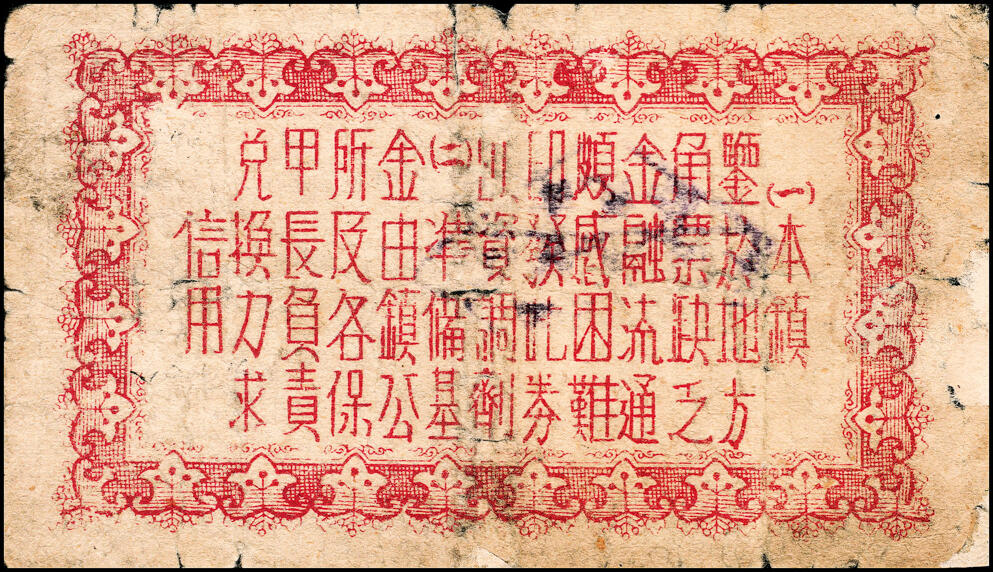 (一)本鎮
鑒於地方
角票缺乏
金融流通
頗感困難
印發此券
以資調劑
(二)準備基
金由鎮公
所及各保
甲長負責
兌換力求
信用